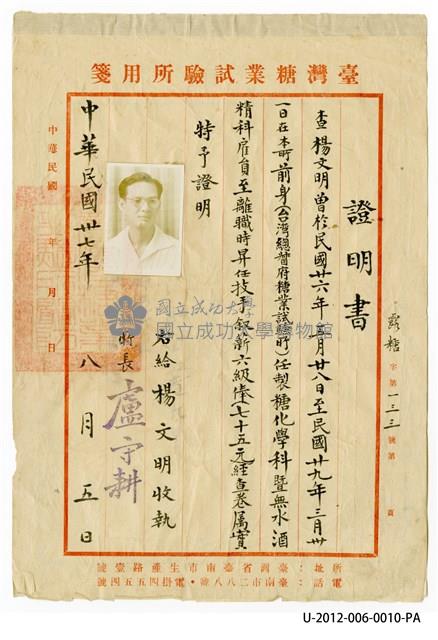 臺灣糖業試驗所用箋
證明書
糖
字第一三三號第
頁
查楊文明曾於民國廿六年月廿八日至民國廿九年三月卅
一日在本所前身(台灣總督府糖業試驗所)任製糖化學科暨無水酒
精科雇員至離職時昇任技手叙薪六級俸七十五元經查卷屬實
特予證明
右給楊文明收執
所長
盧守耕
中華民國卅七年八月五日
中華民國
年
月
日
所址:臺灣省臺南市生產路臺號
電話:臺南市二八八號・電掛四五五四號
國立成功大學
國立成功大學博物館
U-2012-006-0010-PA